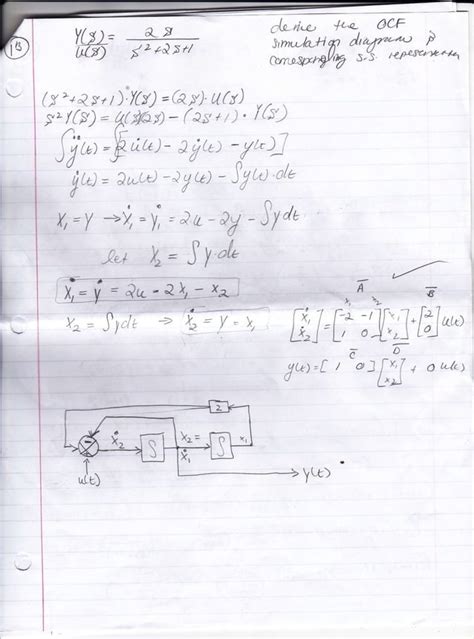 1B
Y(s)/U(s) = 2s / s²+2s+1
derive the OCF
simulation diagram &
corresponding s.s. representation
(s²+2s+1)·Y(s)=(2s)·U(s)
s²Y(s)=U(s)(2s)-(2s+1)·Y(s)
∫ÿ(t)=∫[2u̇(t)-2ẏ(t)-y(t)]
ẏ(t)=2u(t)-2y(t)-∫y(t)·dt
x₁=y → ẋ₁=ẏ₁=2u-2y-∫ydt
let x₂=∫y·dt
ẋ₁=ẏ=2u-2x₁-x₂
x₂=∫ydt ⇒ ẋ₂=y=x₁
A̅ B̅
x₁ x₂
[ẋ₁ ẋ₂]=[-2 -1 1 0][x₁ x₂]+[2 0]u(t)
C̅ D̅
y(t)=[1 0][x₁ x₂]+0u(t)
2
- ẋ₂ ∫ x₂= ẋ₁ ∫ x₁
u(t)
y(t)